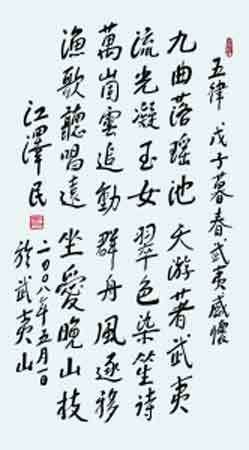 五律 戊子暮春武夷感懷
九曲落瑤池 天游著武夷
流光凝玉女 翠色染笙詩
萬崗雲追動 群舟風逐移
漁歌聽唱遠 坐愛晚山枝
江澤民 二〇〇八年五月一日
於武夷山